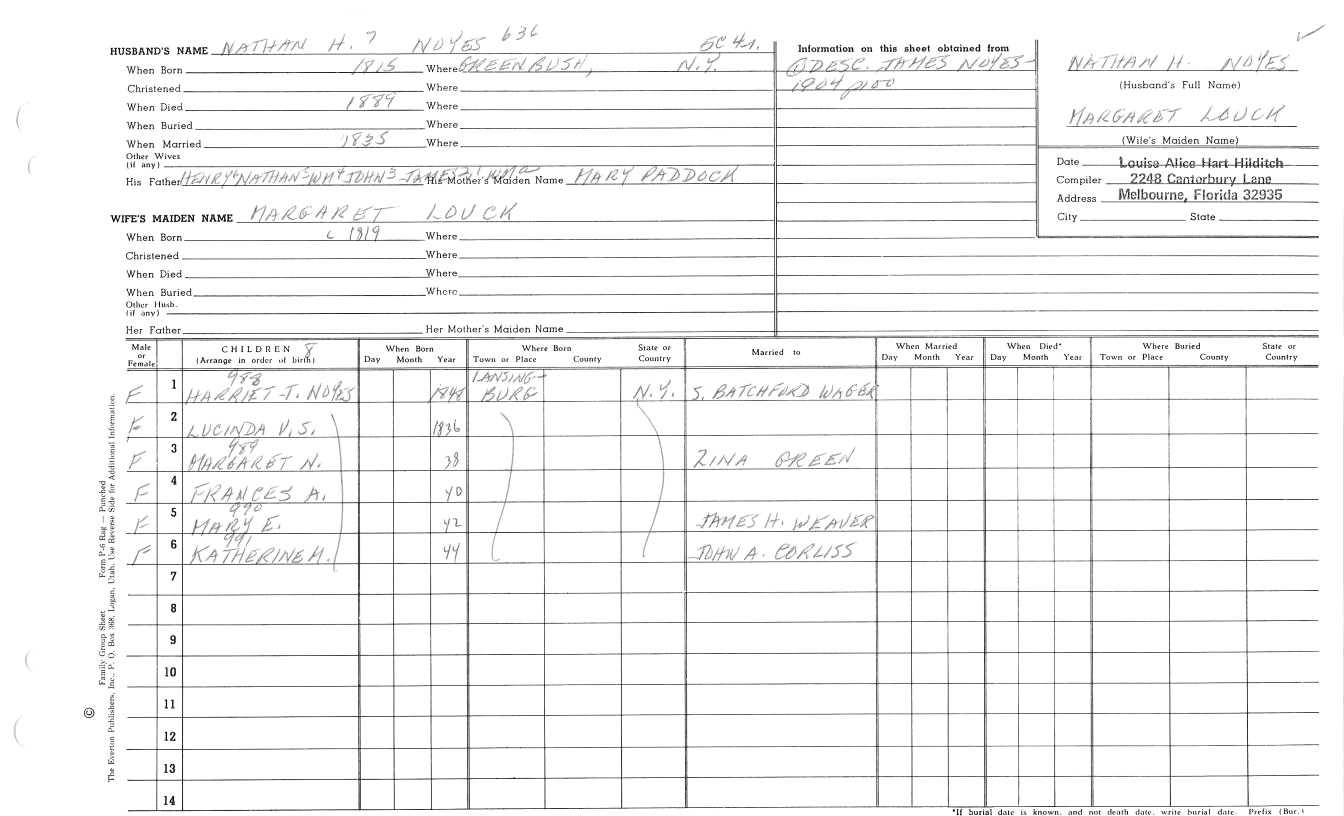 HUSBAND'S NAME NATHAN H. 7 NOYES 636 5C 4s.
When Born 1815 Where GREENBUSH, N.Y.
Christened Where
When Died 1889 Where
When Buried Where
When Married 1835 Where
Other Wives
(if any)
His Father HENRY6 NATHAN5 WM4 JOHN3 JAMES2 1 WMa His Mother's Maiden Name MARY PADDOCK
WIFE'S MAIDEN NAME MARGARET LOUCK
When Born c 1819 Where
Christened Where
When Died Where
When Buried Where
Other Husb.
(if any)
Her Father Her Mother's Maiden Name
Information on this sheet obtained from
① DESC. JAMES NOYES-
1904 p100
NATHAN H. NOYES
(Husband's Full Name)
MARGARET LOUCK
(Wife's Maiden Name)
Date Louise Alice Hart Hilditch
Compiler 2248 Cantorbury Lane
Address Melbourne, Florida 32935
City State
Male or Female CHILDREN 8 (Arrange in order of birth) When Born Day Month Year Where Born Town or Place County State or Country Married to When Married Day Month Year When Died* Day Month Year Where Buried Town or Place County State or Country
F 1 988 HARRIET J. NOYES 1848 LANSING-BURG N.Y. S. BATCHFORD WAGER
F 2 LUCINDA V.S. 1836
F 3 989 MARGARET N. 38 ZINA GREEN
F 4 FRANCES A. 40
F 5 990 MARY E. 42 JAMES H. WEAVER
F 6 991 KATHERINE M. 44 JOHN A. CORLISS
7
8
9
10
11
12
13
14
*If burial date is known, and not death date, write burial date. Prefix (Bur.)
© Family Group Sheet Form P-6 Bag — Punched
The Everton Publishers, Inc., P. O. Box 368, Logan, Utah. Use Reverse Side for Additional Information.